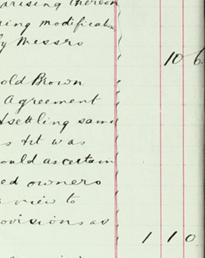 arising thereon
ring modification
by Messrs
10 6
old Brown
Agreement
d settling same
s it was
ould ascertain
ed owners
a view to
ovisions as
1 1 0